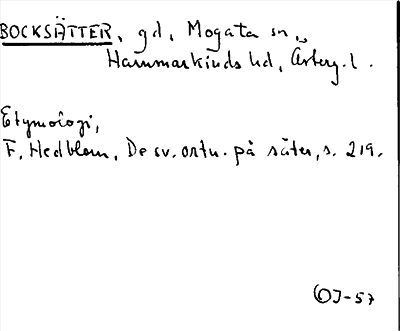 BOCKSÄTTER, gd, Mogata sn.,
Hammarkinds hd, Österg. l.
Etymologi,
F. Hedblom, De sv. ortn. på säter, s. 219.
OJ-57